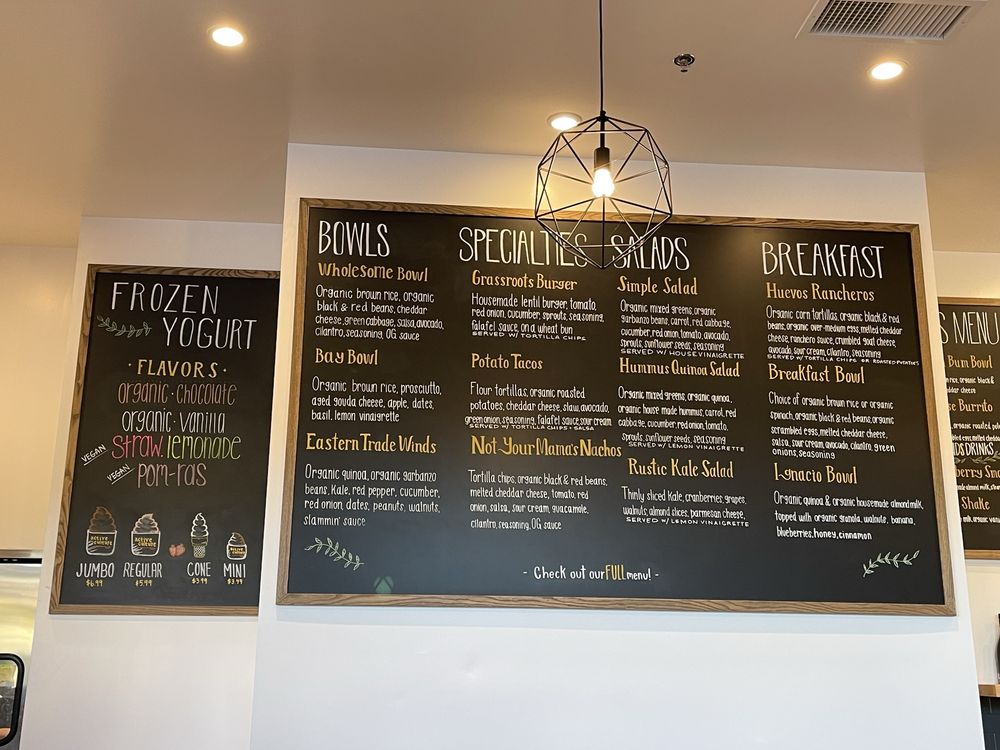 FROZEN
YOGURT
· FLAVORS ·
organic · chocolate
organic · vanilla
VEGAN straw.lemonade
VEGAN pom-ras
active culture
active culture
active culture
JUMBO REGULAR CONE MINI
$6.99 $5.99 $3.99 $3.99
BOWLS
Wholesome Bowl
Organic brown rice, organic
black & red beans, cheddar
cheese, green cabbage, salsa, avocado,
cilantro, seasoning, OG sauce
Bay Bowl
Organic brown rice, prosciutto,
aged gouda cheese, apple, dates,
basil, lemon vinaigrette
Eastern Trade Winds
Organic quinoa, organic garbanzo
beans, kale, red pepper, cucumber,
red onion, dates, peanuts, walnuts,
slammin' sauce
SPECIALTIES
Grassroots Burger
Housemade lentil burger, tomato,
red onion, cucumber, sprouts, seasoning,
falafel sauce, on a wheat bun
SERVED W/ TORTILLA CHIPS
Potato Tacos
Flour tortillas, organic roasted
potatoes, cheddar cheese, slaw, avocado,
green onion, seasoning, falafel sauce, sour cream
SERVED W/ TORTILLA CHIPS + SALSA
Not-Your Mama's Nachos
Tortilla chips, organic black & red beans,
melted cheddar cheese, tomato, red
onion, salsa, sour cream, guacamole,
cilantro, seasoning, OG sauce
SALADS
Simple Salad
Organic mixed greens, organic
garbanzo beans, carrot, red cabbage,
cucumber, red onion, tomato, avocado,
sprouts, sunflower seeds, seasoning
SERVED W/ HOUSE VINAIGRETTE
Hummus Quinoa Salad
Organic mixed greens, organic quinoa,
organic house made hummus, carrot, red
cabbage, cucumber, red onion, tomato,
sprouts, sunflower seeds, seasoning
SERVED W/ LEMON VINAIGRETTE
Rustic Kale Salad
Thinly sliced kale, cranberries, grapes,
walnuts, almond slices, parmesan cheese,
SERVED W/ LEMON VINAIGRETTE
BREAKFAST
Huevos Rancheros
Organic corn tortillas, organic black & red
beans, organic over-medium eggs, melted cheddar
cheese, ranchero sauce, crumbled goat cheese,
avocado, sour cream, cilantro, seasoning
SERVED W/ TORTILLA CHIPS OR ROASTED POTATOES
Breakfast Bowl
Choice of organic brown rice or organic
spinach, organic black & red beans, organic
scrambled eggs, melted cheddar cheese,
salsa, sour cream, avocado, cilantro, green
onions, seasoning
Ignacio Bowl
Organic quinoa & organic housemade almond milk,
topped with organic granola, walnuts, banana,
blueberries, honey, cinnamon
- Check out our FULL menu! -
S MENU
Bum Bowl
rice, organic black &
cheese
Burrito
DRINKS
Shake